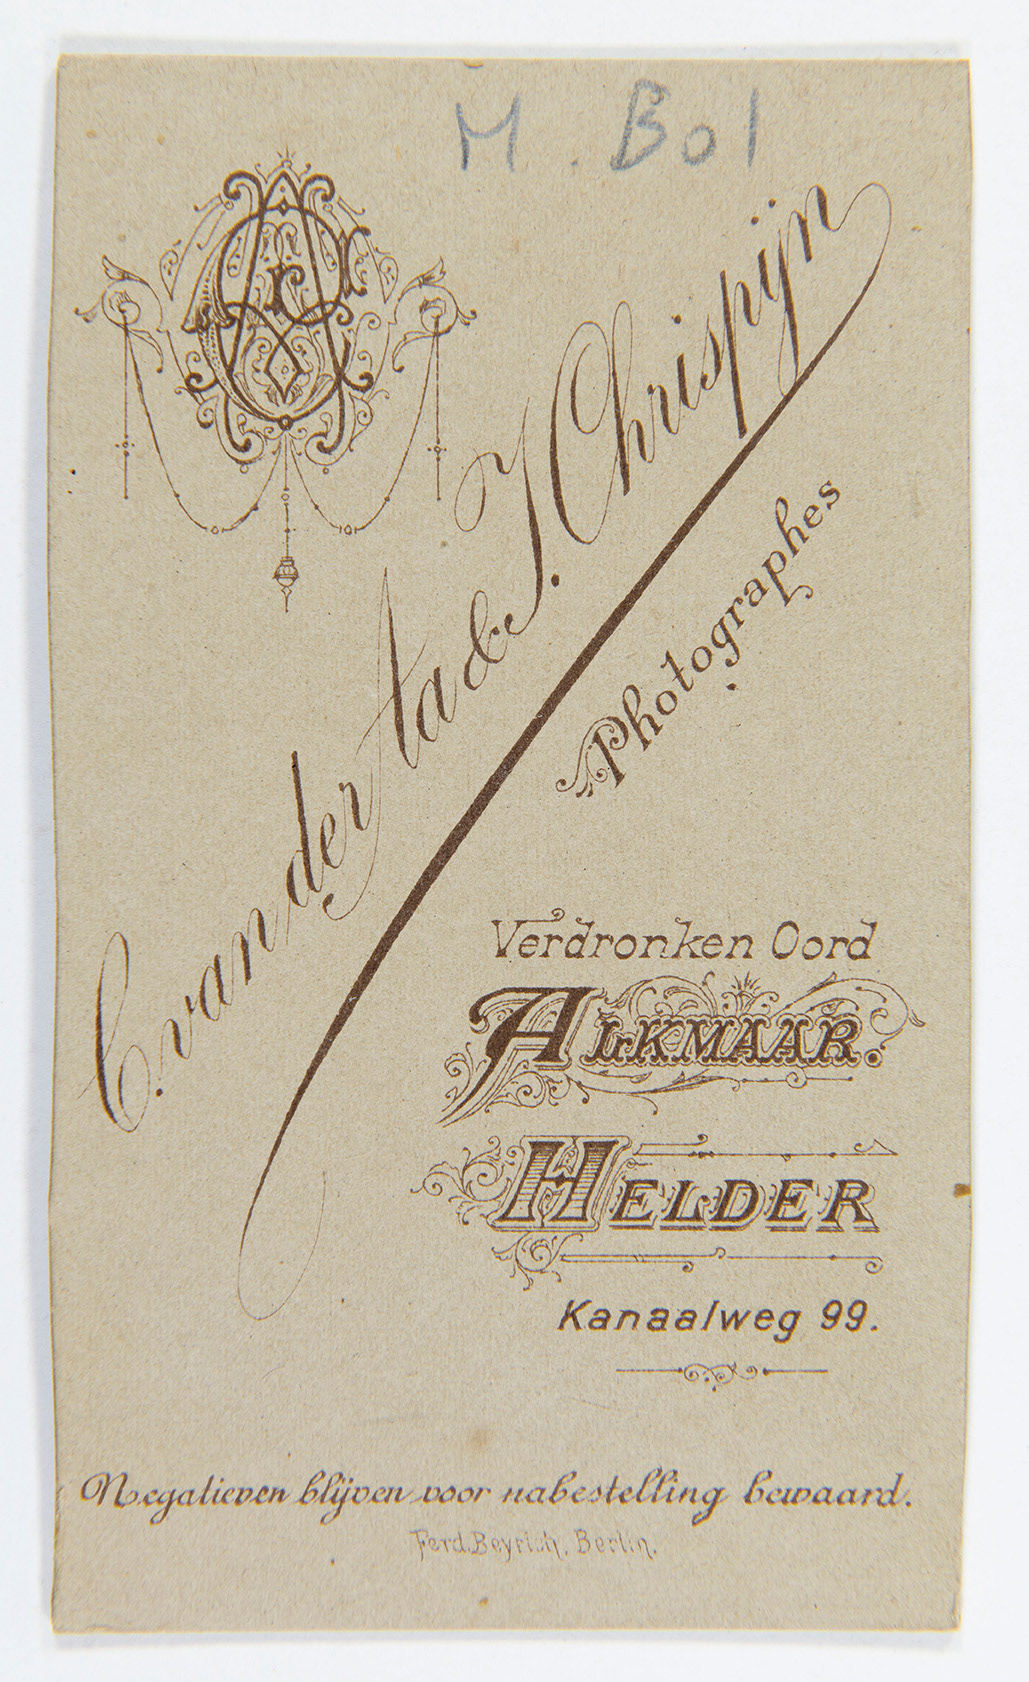 M. Bol
C. van der Aa & J. Chrispijn
Photographes
Verdronken Oord
ALKMAAR.
HELDER
Kanaalweg 99.
Negatieven blijven voor nabestelling bewaard.
Ferd. Beyrich, Berlin.